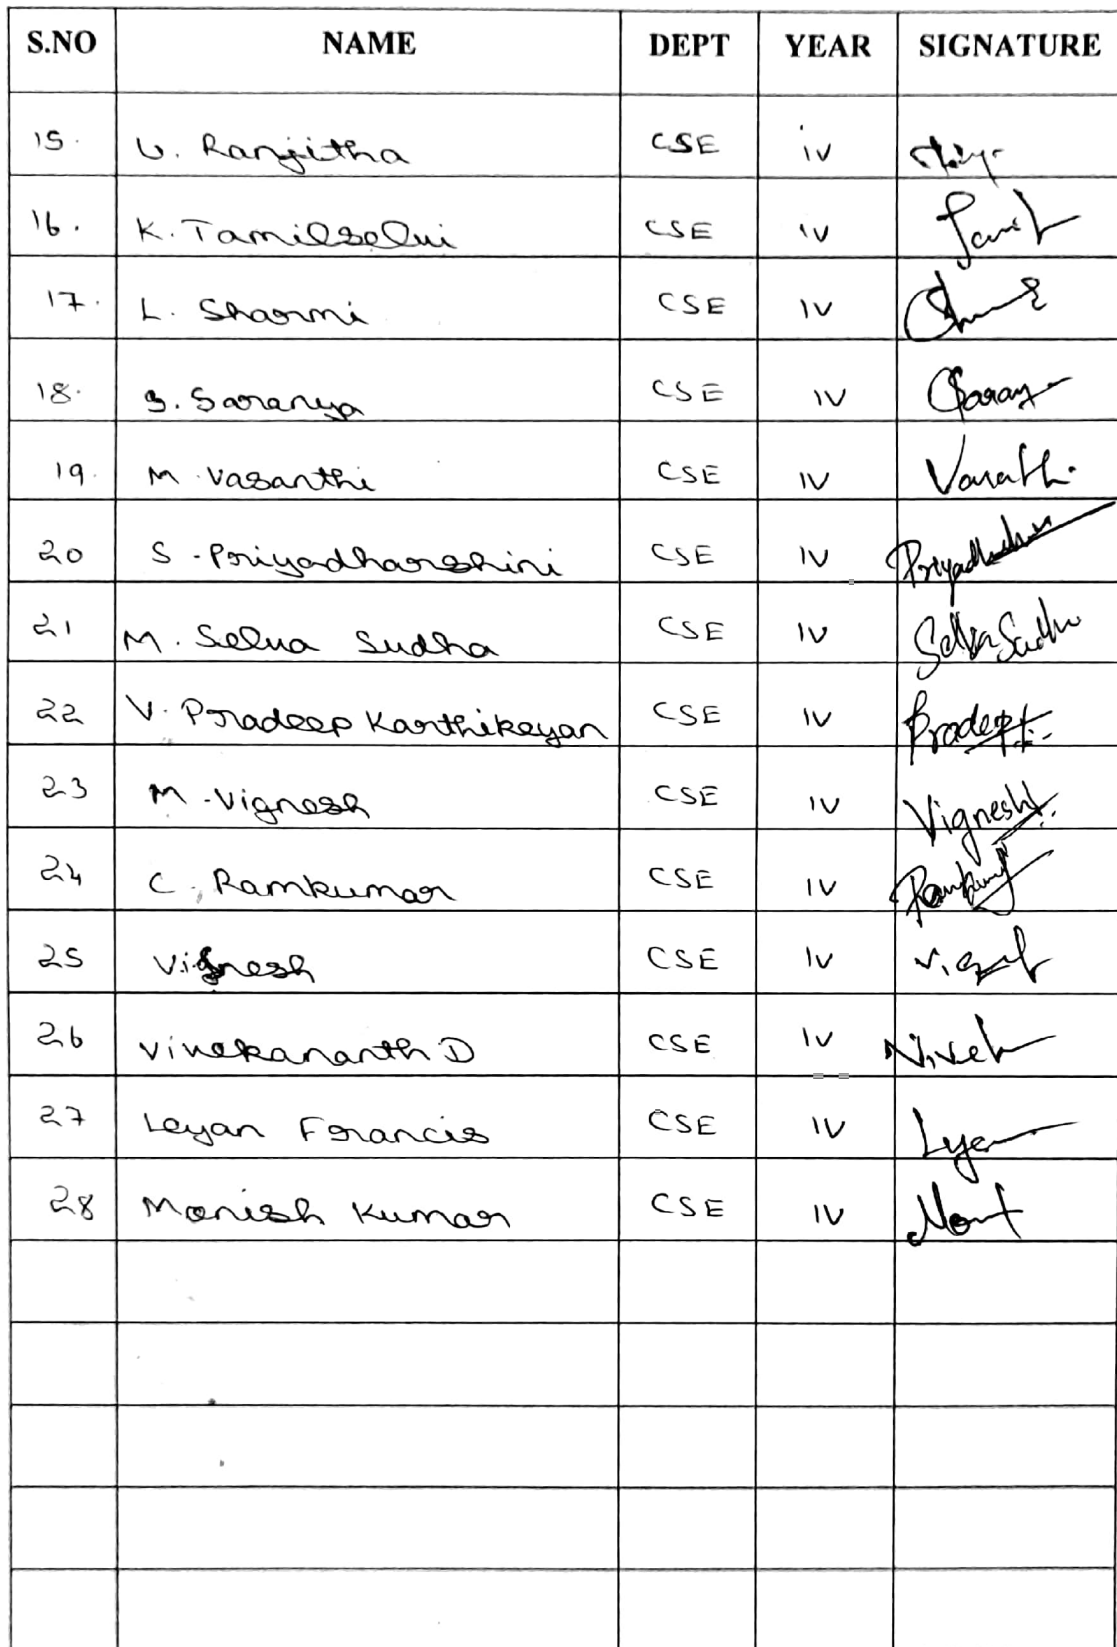 S.NO NAME DEPT YEAR SIGNATURE
15. U. Ranjitha CSE iv
16. K. Tamilselvi CSE iv
17. L. Sharmi CSE IV
18. S. Saranya CSE IV Saranya
19. M. Vasanthi CSE IV
20 S. Priyadharshini CSE IV
21 M. Selva Sudha CSE IV Selva Sudha
22 V. Pradeep Karthikeyan CSE IV Pradeep
23 M. Vignesh CSE IV Vignesh
24 C. Ramkumar CSE IV
25 Vignesh CSE IV
26 Vivekananth D CSE IV Vivek
27 Leyan Francis CSE IV
28 Manish Kumar CSE IV